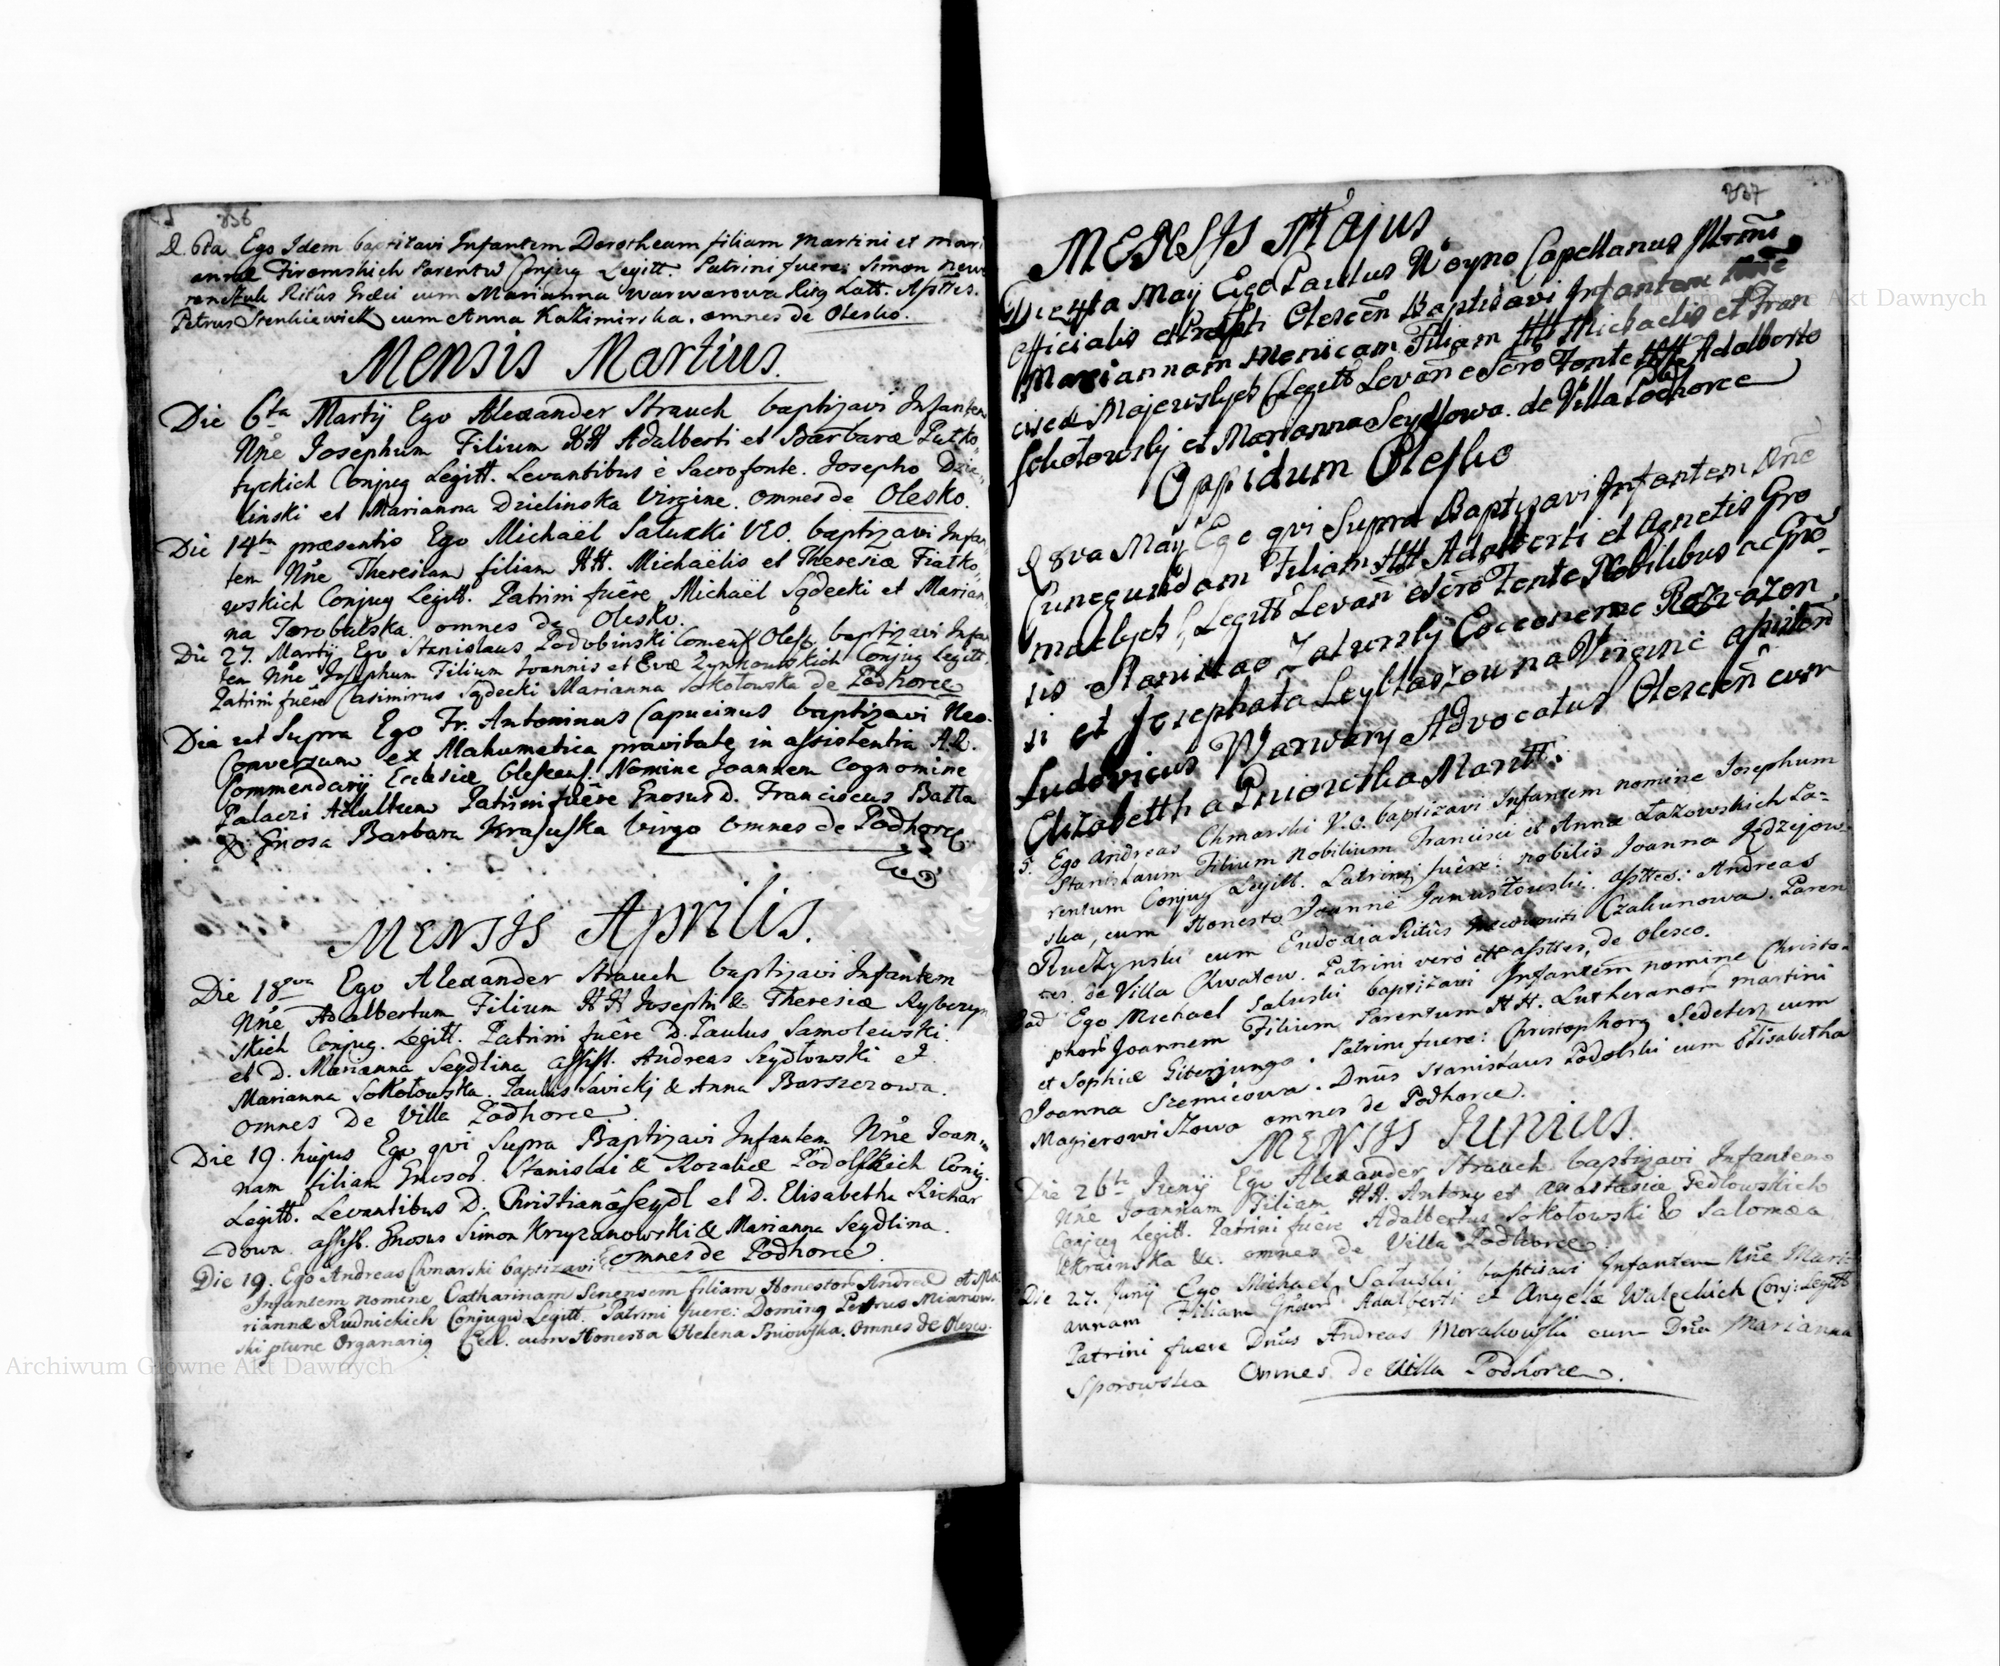 836
D. 6ta Ego Idem baptizavi Infantem Dorotheam filiam Martini et Mari
annæ Parentu Conjug Legitt. Patrini fuere: Simon
Ritûs Græci cum Marianna Warwarowa Ritq Latt. Assttes.
Petrus Stenkiewick cum Anna Kazimirska. omnes de Olesko.
Mensis Martius.
Die 6ta Martÿ Ego Alexander Strauch baptizavi Infantem
Nñe Josephum Filium HH Adalberti et Barbaræ Putko
tyckich Conjug Legitt. Levantibus è Sacro fonte. Josepho Dzie-
linski et Marianna Dzielinska Virgine. omnes de Olesko.
Die 14ta præsentis Ego Michaël Saluski V.O. baptizavi Infan-
tem Nñe Theresiam filiam HH. Michaëlis et Theresiæ Fiatko
wskich Conjug Legitt. Patrini fuêre Michaël Sądecki et Marian-
na Torobalska. omnes de Olesko.
Die 27. Martÿ Ego Stanislaus Podobinski Comend Olesz. baptizavi Infan
tem Nñe Josephum Filium Joannis et Evæ Zynkowskich Conjug Legitt.
Patrini fuêre Casimirus Sądecki Marianna Sokołowska de Podhorce
Die ut Supra Ego Fr. Antoninus Capucinus baptizavi Neo-
Conversum ex Mahumetica pravitate in assistentia A.R.
Commendarÿ Ecclesiæ Olescens. Nomine Joannem Cognomine
Palaczi Adultum Patrini fuêre Gnosus D. Franciscus Batta
& Gnosa Barbara Krasuska Virgo omnes de Podhorce.
MENSIS Aprilis.
Die 18va Ego Alexander Strauch baptizavi Infantem
Nñe Adalbertum Filium HH Josephi & Theresiæ Ryberzyn
skich Conjug. Legitt. Patrini fuêre D. Paulus Samolewski.
et D. Marianna Seydlina assist. Andreas Szydłowski et
Marianna Sokołowska. Paulus Savickÿ & Anna Barszczowa.
omnes de Villa Podhorce.
Die 19. hujus Ego qvi Supra Baptizavi Infantem Nñe Joan-
nam filiam Gnosor. Stanislai & Rozaliæ Podolskich Conjg.
Legitt. Levantibus D. Christianô Seydl et D. Elisabetha Richar
dowa assist. Gnosus Simon Krzyzanowski & Marianna Seydlina.
omnes de Podhorce.
Die 19. Ego Andreas Chmarski baptizavi
Infantem nomine Catharinam Senensem filiam Honestor. Andreæ et Ma
riannæ Rudnickich Conjugu Legitt. Patrini fuere: Doming Petrus Mianow-
ski ptunc Organariq Eccl. cum Honesta Helena Sniowska. omnes de Olesco.
837
MENSIS Majus
Die 4ta Maÿ Ego Paulus Woyno Capellanus
Officialis et Præpti Olescen Baptizavi Infantem Nñe
Mariannam Monicam Filiam HH Michaelis et Fran
ciscæ Majewskych C Legitt Levan e Scro Fonte HH Adalberto
Sokołowsky et Marianna Seydlowa. de Villa Podhorce
Oppidum Olesko
D. 8va Maÿ Ego qvi Supra Baptizavi Infantem Nñe
Cunegundam Filiam HH Adalberti et Agnetis Gro
mackych C Legitt Levan e Scro Fonte Nobilibus ac Gno
sis Stanislao Zaturskÿ Rozwazon
si et Josephata Virgine assisten
Ludovicus Warwary Advocatus Olescen cum
Elizabettha Maritt.
5. Ego Andreas Chmarski V.O. baptizavi Infantem nomine Josephum
Stanislaum Filium Nobilium Francisci et Annæ Łazowskich Pa-
rentum Conjug Legitt. Patrini fuêre: nobilis Joanna Jędzejow-
ska, cum Honesto Joanne Jamustowski. Assttes: Andreas
Ruczynski cum Eudoxia Ritûs Czakunowa. Paren
tes. de Villa Chwatow. Patrini verò et assttes, de Olesco.
Ead Ego Michael Saluski baptizavi Infantem nomine Christo-
phorũ Joannem Filium Parentum HH. Lutheranor Martini
et Sophiæ Giterjungo. Patrini fuere: Christophorq Sedeterz cum
Joanna Szemicowa. Dnũs Stanislaus Podolski cum Elisabetha
Magierowiczowa omnes de Podhorce.
MENSIS Junius.
Die 26ta Junÿ Ego Alexander Strauch baptizavi Infantem
Nñe Joannam Filiam HH. Antony et Anastasiæ Fedłowskich
Conjug Legitt. Patrini fuêre Adalbertus Sokołowski & Salomea
Ukrainska &. omnes de Villa Podhorce.
Die 27. Junÿ Ego Michael Saluski baptizavi Infantem Nñe Mari-
annam Filiam Adalberti et Angelæ Waleckich Conj: Legitt
Patrini fuere Dnũs Andreas Morakowski cum Dña Marianna
Sporowska Omnes de Villa Podhorce.
Archiwum Główne Akt Dawnych
Archiwum Główne Akt Dawnych